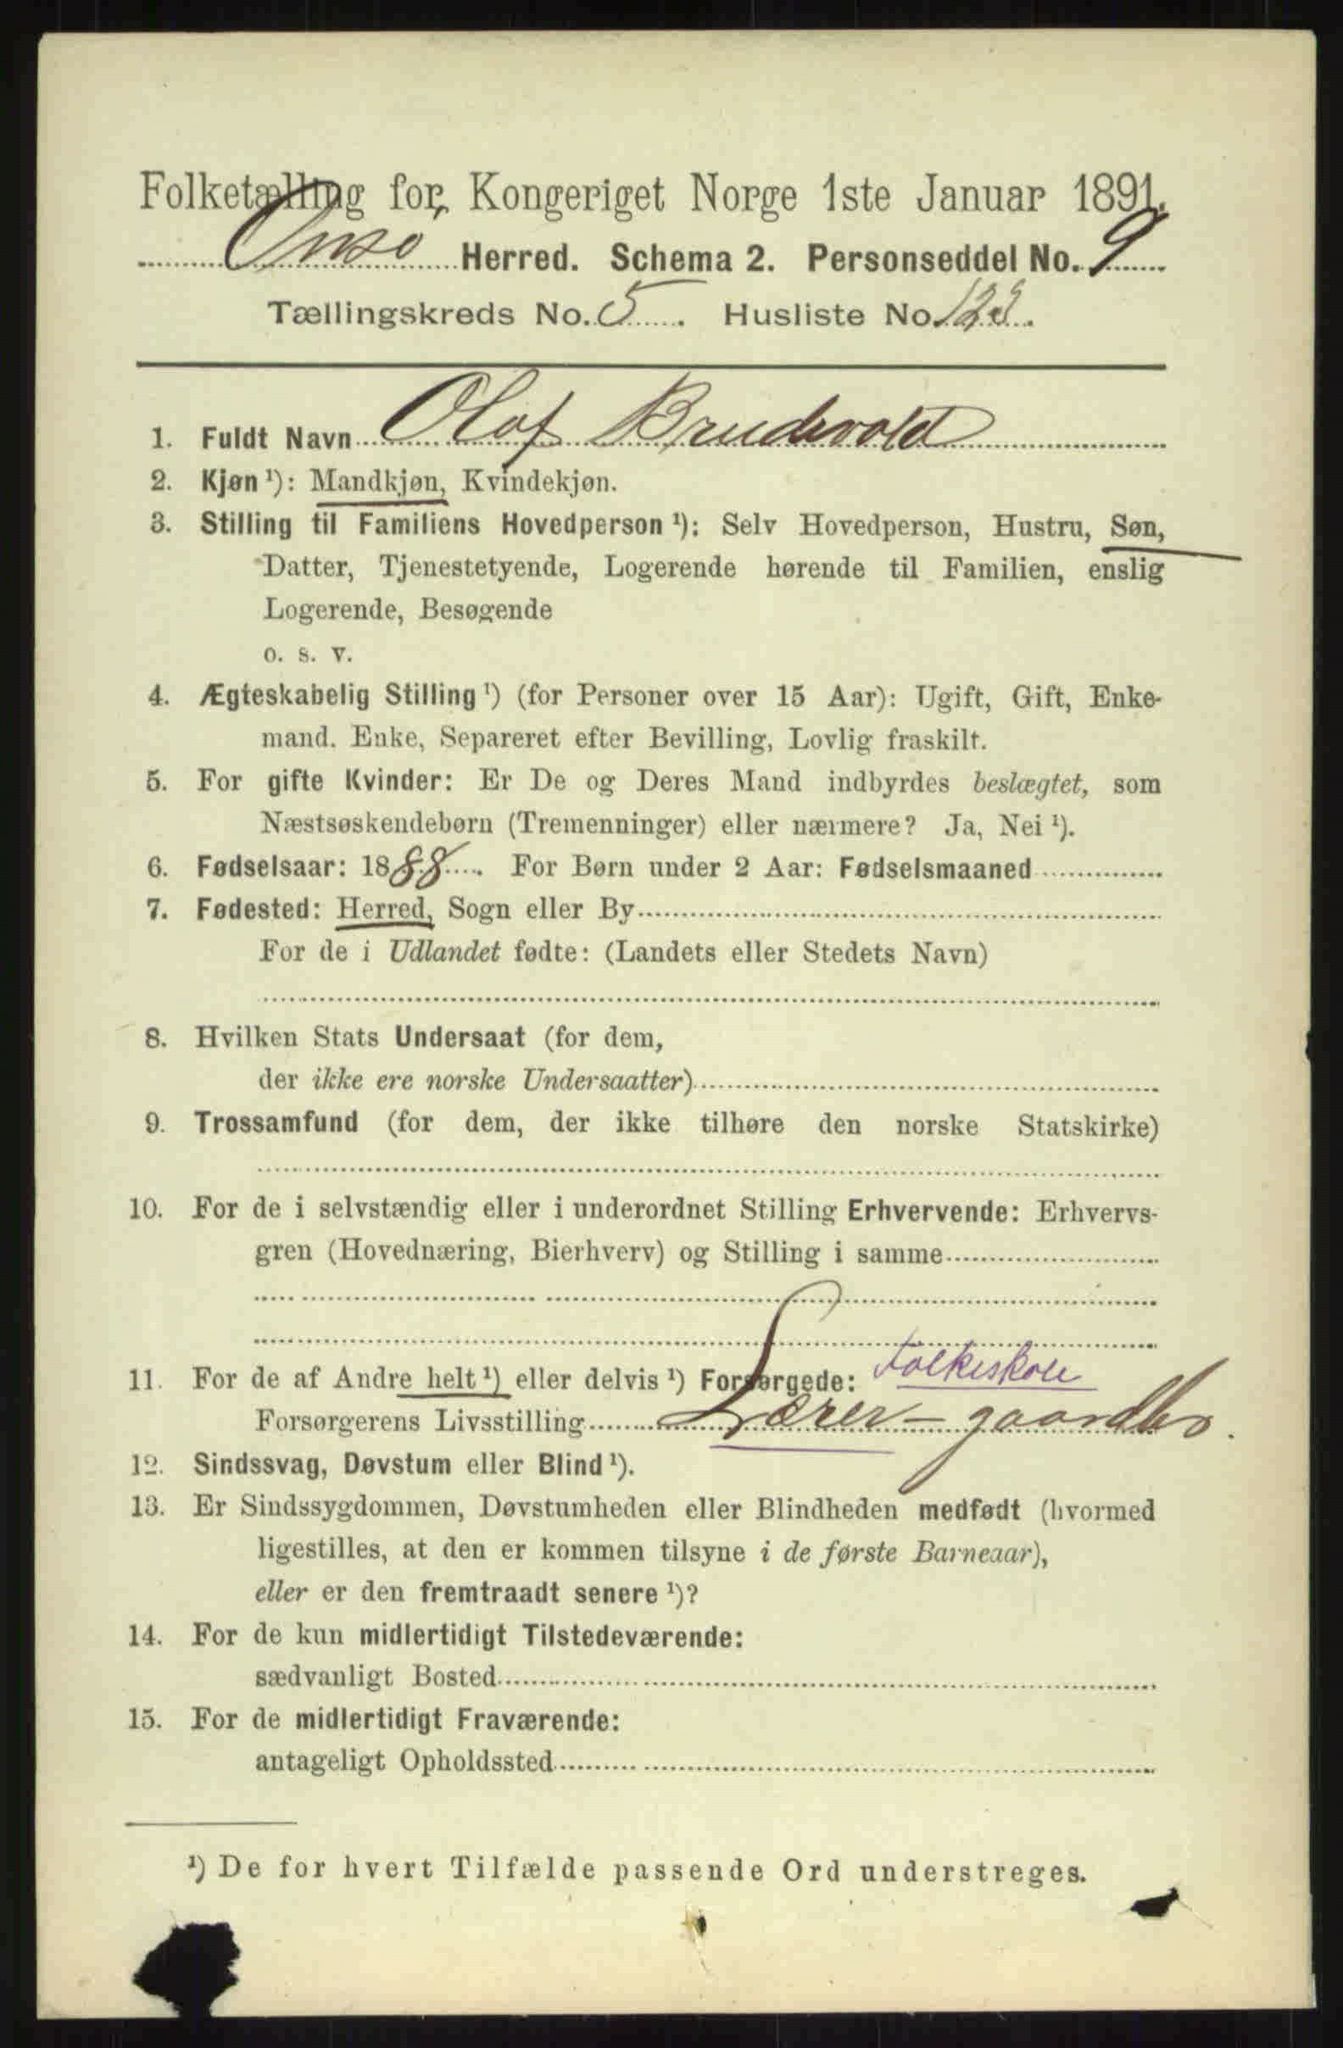 Folketælling for Kongeriget Norge 1ste Januar 1891.
Onsö Herred. Schema 2. Personseddel No. 9
Tællingskreds No. 5. Husliste No. 123.
1. Fuldt Navn Olaf Brudevold
2. Kjøn ¹): Mandkjøn, Kvindekjøn.
3. Stilling til Familiens Hovedperson ¹): Selv Hovedperson, Hustru, Søn,
Datter, Tjenestetyende, Logerende hørende til Familien, enslig
Logerende, Besøgende
o. s. v.
4. Ægteskabelig Stilling ¹) (for Personer over 15 Aar): Ugift, Gift, Enke-
mand. Enke, Separeret efter Bevilling, Lovlig fraskilt.
5. For gifte Kvinder: Er De og Deres Mand indbyrdes beslægtet, som
Næstsøskendebørn (Tremenninger) eller nærmere? Ja, Nei ¹).
6. Fødselsaar: 1888. For Børn under 2 Aar: Fødselsmaaned
7. Fødested: Herred, Sogn eller By
For de i Udlandet fødte: (Landets eller Stedets Navn)
8. Hvilken Stats Undersaat (for dem,
der ikke ere norske Undersaatter)
9. Trossamfund (for dem, der ikke tilhøre den norske Statskirke)
10. For de i selvstændig eller i underordnet Stilling Erhvervende: Erhvervs-
gren (Hovednæring, Bierhverv) og Stilling i samme
11. For de af Andre helt ¹) eller delvis ¹) Forsørgede: Folkeskole
Forsørgerens Livsstilling Lærer - gaardbr.
12. Sindssvag, Døvstum eller Blind ¹).
13. Er Sindssygdommen, Døvstumheden eller Blindheden medfødt (hvormed
ligestilles, at den er kommen tilsyne i de første Barneaar),
eller er den fremtraadt senere ¹)?
14. For de kun midlertidigt Tilstedeværende:
sædvanligt Bosted
15. For de midlertidigt Fraværende:
antageligt Opholdssted
¹) De for hvert Tilfælde passende Ord understreges.